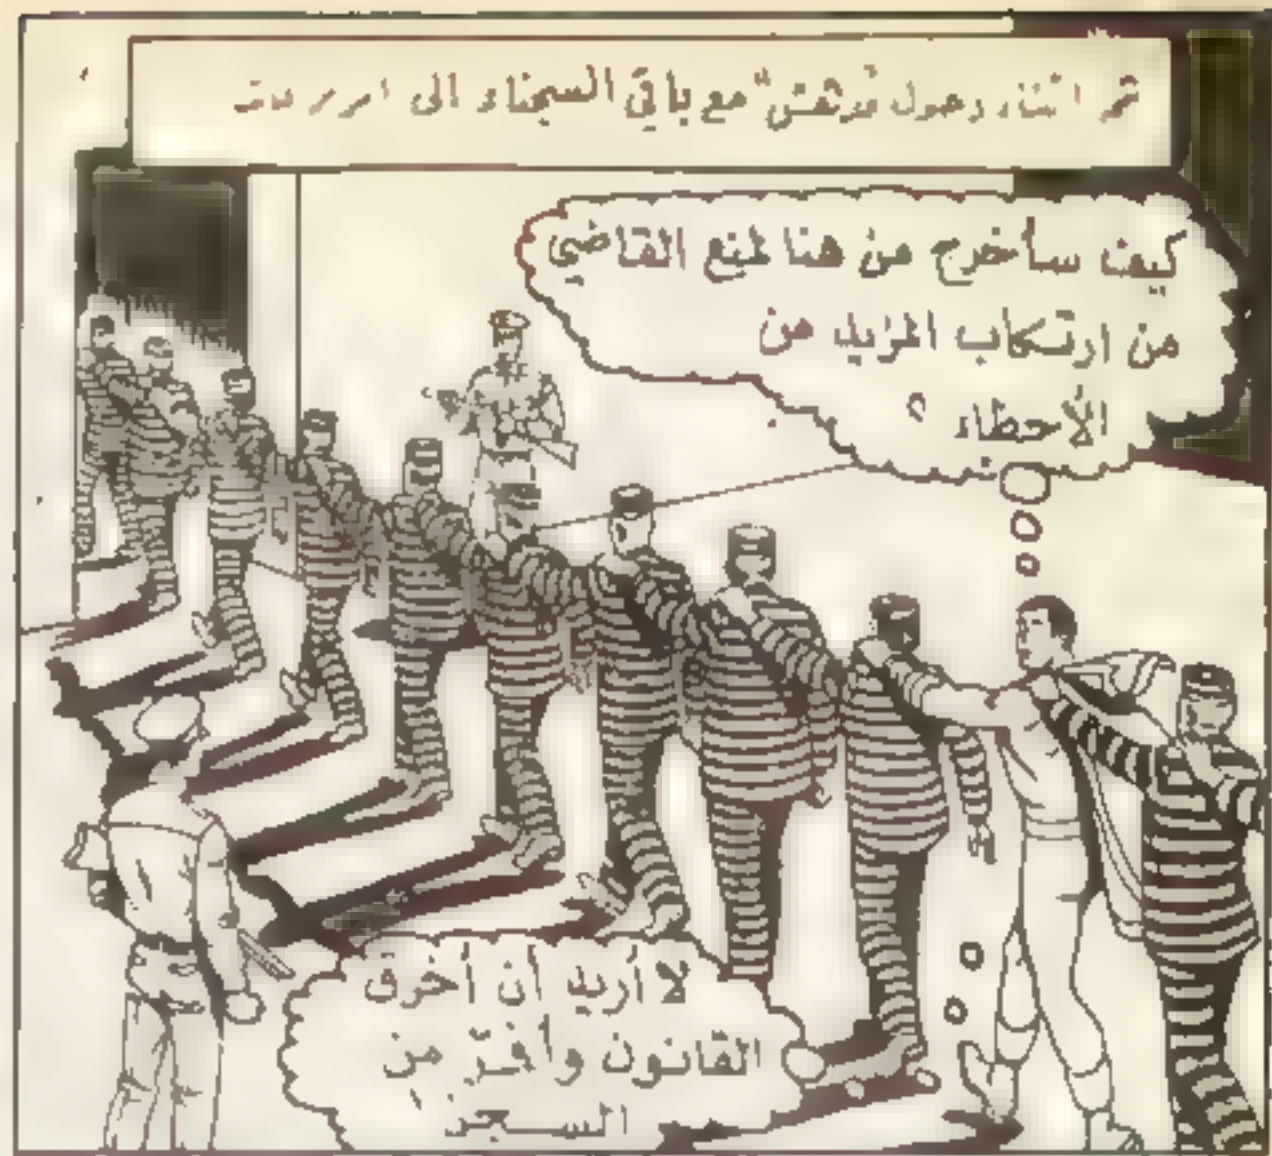 ثم اثناء دخول "مع باقي السجناء الى
كيف سأخرج من هنا لمنع القاضي
من ارتكاب المزيد من
الأخطاء ؟
لا أريد أن أخرق
القانون وأفرّ من
السجن !